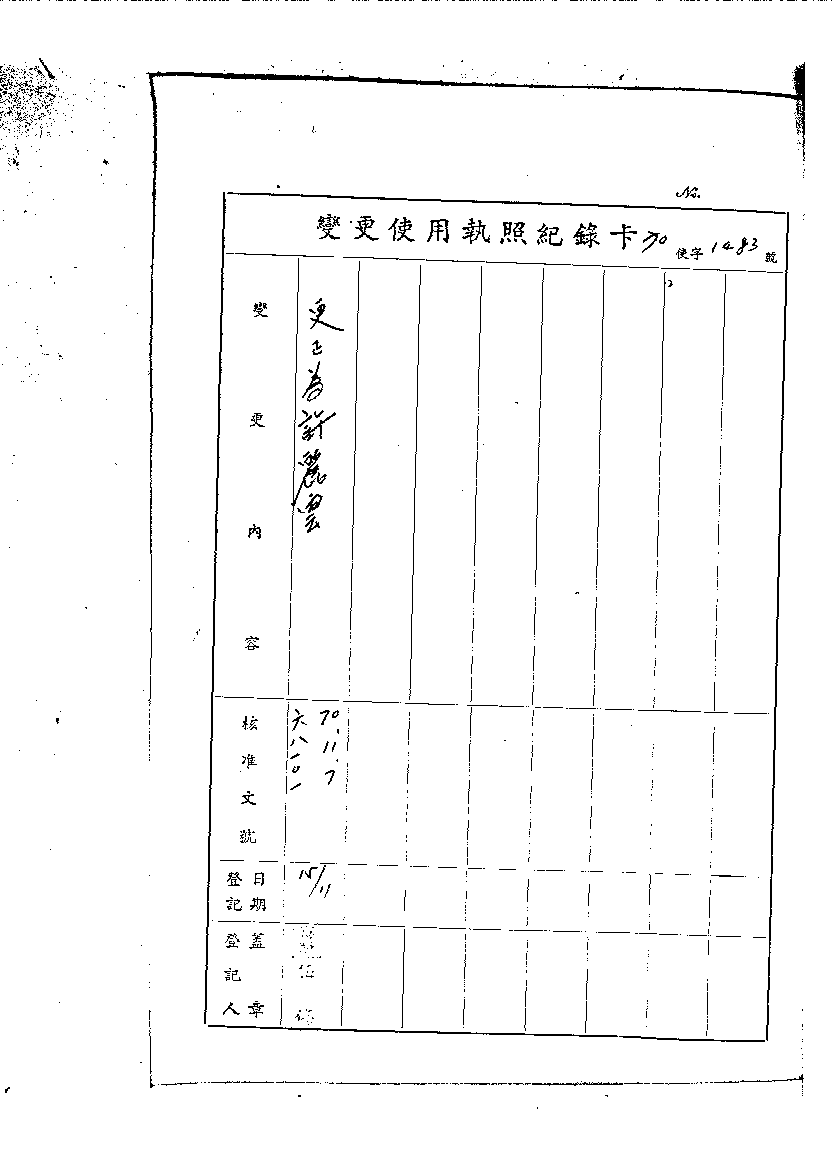 No.
變更使用執照紀錄卡 70 使字 1483 號
變更內容
更正為許麗雲
核准文號
70.11.7
六八一0一
登記日期
15/11
登記人蓋章